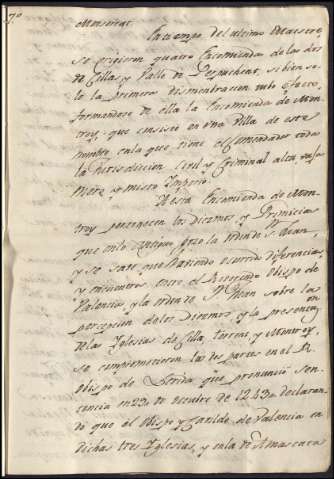 7º
Monserrat.
En tiempo del ultimo Maestre,
se erigieron quatro Encomiendas de las dos
de Cillas y Valle de Perpuchent, si bien so
lo la primera desmembracion tubo efecto,
formandose de ella la Encomienda de Mon
troy, que consiste en una Villa de este
nombre en la que tiene el Comendador toda
la Jurisdiccion Civil y Criminal alta, vaxa
mero, y mixto Imperio.
A esta Encomienda de Mon
troy pertenecen los Diezmos y Primicias
que en lo antiguo gozo la orden de Sn. Juan,
y se sabe que haviendo ocurrido diferencias,
y encuentros entre el Reverendo Obispo de
Valencia, y la orden de Sn. Juan sobre la
percepcion de los Diezmos y la presentacion
de las Yglesias de Cilla, torrente, y Montroy,
se comprometieron las dos partes en el R.
Obispo de Lerida que pronunció sen
tencia en 23 de octubre de 1243 declaran
do que el Obispo y Cavildo de Valencia en
dichas tres Yglesias, y en la de Amascara